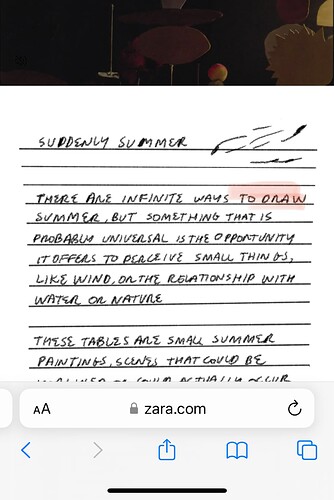 SUDDENLY SUMMER
THERE ARE INFINITE WAYS TO DRAW
SUMMER, BUT SOMETHING THAT IS
PROBABLY UNIVERSAL IS THE OPPORTUNITY
IT OFFERS TO PERCEIVE SMALL THINGS,
LIKE WIND, OR THE RELATIONSHIP WITH
WATER OR NATURE
THESE TABLES ARE SMALL SUMMER
PAINTINGS, SCENES THAT COULD BE
OR COULD ACTUALLY OCCUR
AA zara.com